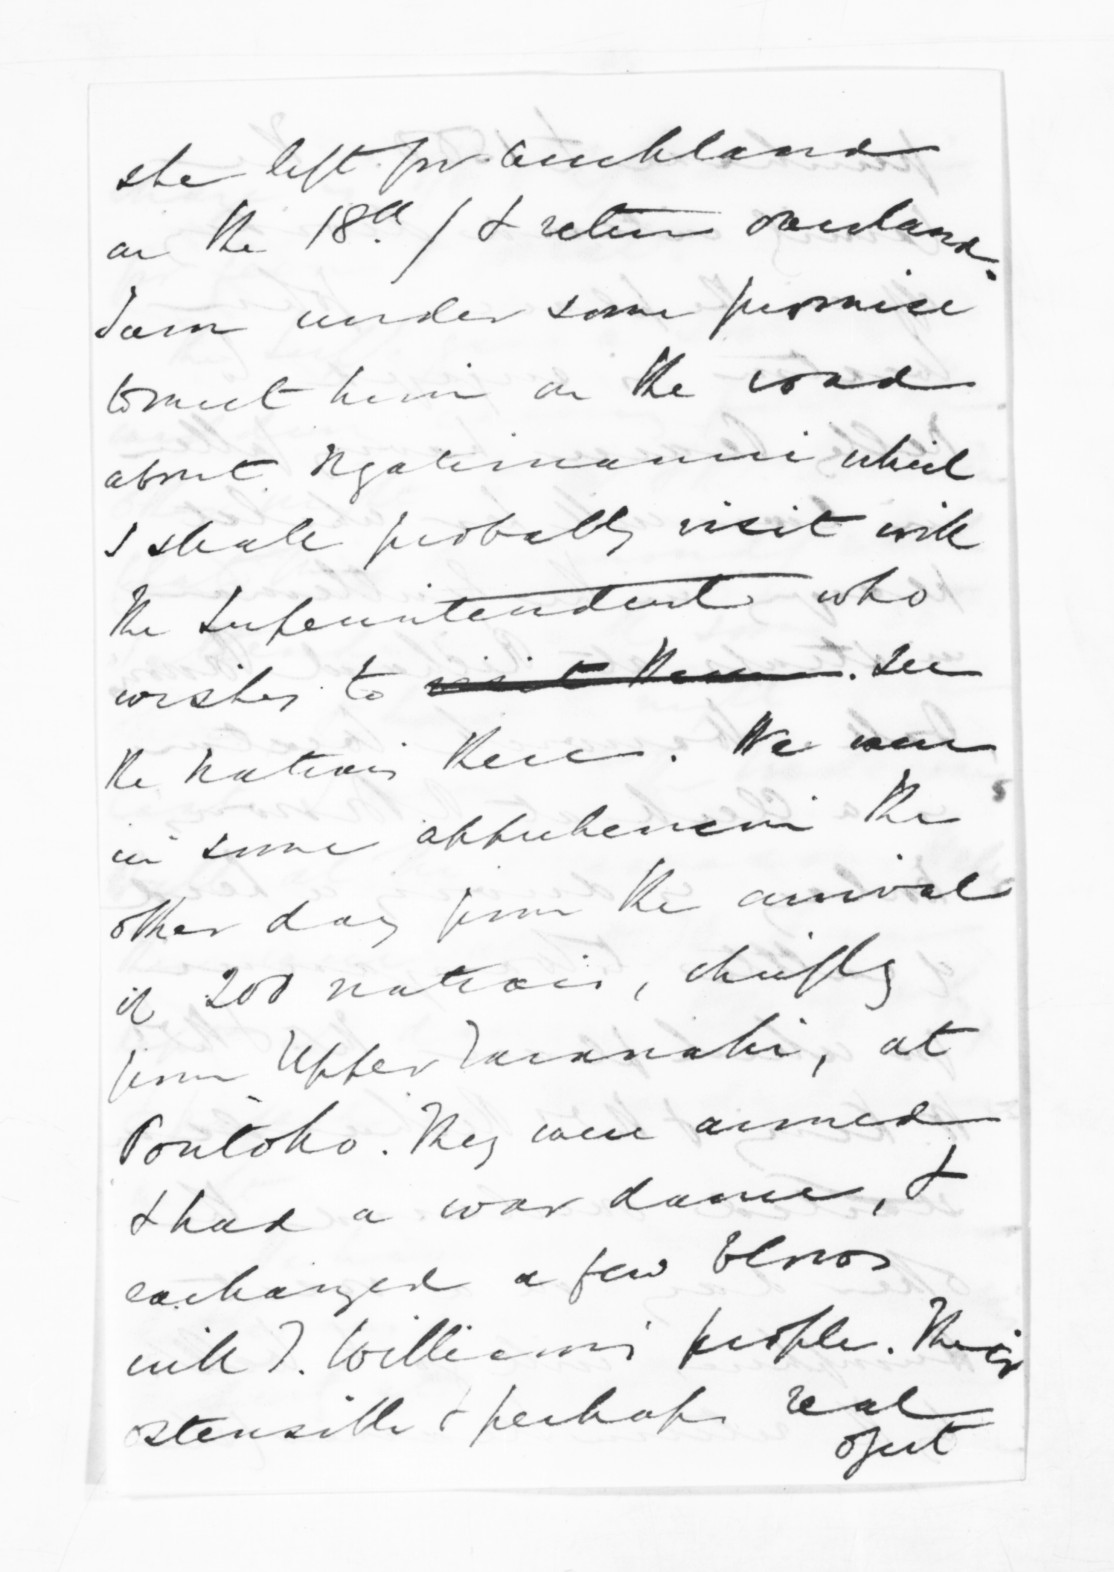 she left for Auckland
on the 18th / & return overland.
I am under some promise
to meet him on the road
about Ngatimaniei which
I shall probably visit with
the Superintendent who
wishes to visit them. see
the natives there. We were
in some apprehension the
other day from the arrival
of 200 natives, chiefly
from Upper Taranaki, at
Poutoko. They were armed
& had a war dance, &
exchanged a few blows
with T. Williams people. Their
ostensible & perhaps real
object